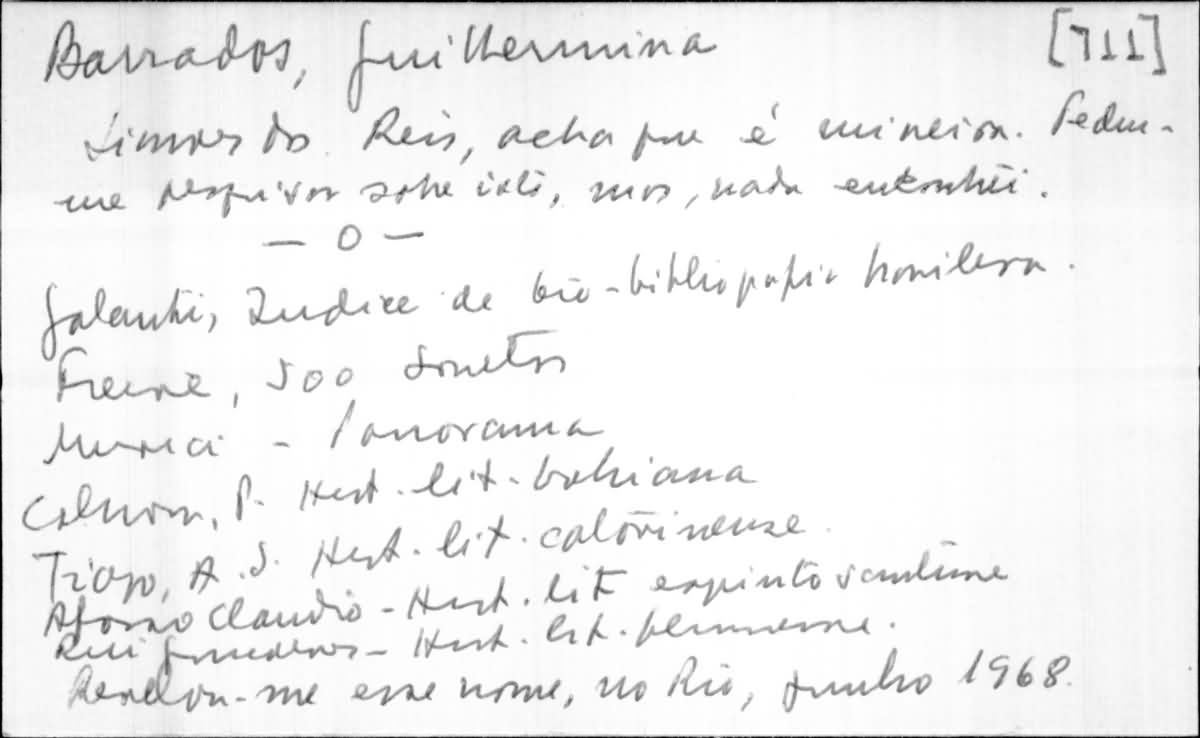 Barrados, Guilhermina [711]
Simões dos Reis, acha que é mineira. Pediu-
me pesquisar sobre isto, mas, nada encontrei.
— 0 —
Galanti, Indice de bio-bibliografia brasileira.
Freire, 500 sonetos
Murici - Panorama
Calmon, P. Hist. lit. bahiana
Tiago, A. S. Hist. lit. catarinense.
Afonso Claudio - Hist. lit. espirito santense
Rui Guedenes - Hist. lit. fluminense.
Revelou-me esse nome, no Rio, junho 1968.